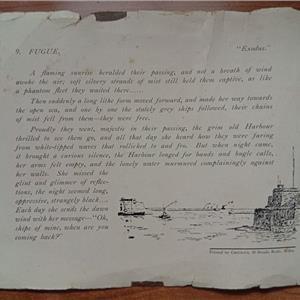 9. FUGUE, "Exodus."
A flaming sunrise heralded their passing, and not a breath of wind
awoke the air; soft silvery strands of mist still held them captive, as like
a phantom fleet they waited there.....
Then suddenly a long lithe form moved forward, and made her way towards
the open sea, and one by one the stately grey ships followed, their chains
of mist fell from them—they were free.
Proudly they went, majestic in their passing, the grim old Harbour
thrilled to see them go, and all that day she heard how they were faring
from white-tipped waves that rollicked to and fro. But when night came,
it brought a curious silence, the Harbour longed for bands and bugle calls,
her arms felt empty, and the lonely water murmured complainingly against
her walls. She missed the
glist and glimmer of reflec-
tions, the night seemed long,
oppressive, strangely black....
Each day she sends the dawn
wind with her message—"Oh,
ships of mine, when are you
coming back?"
Printed by